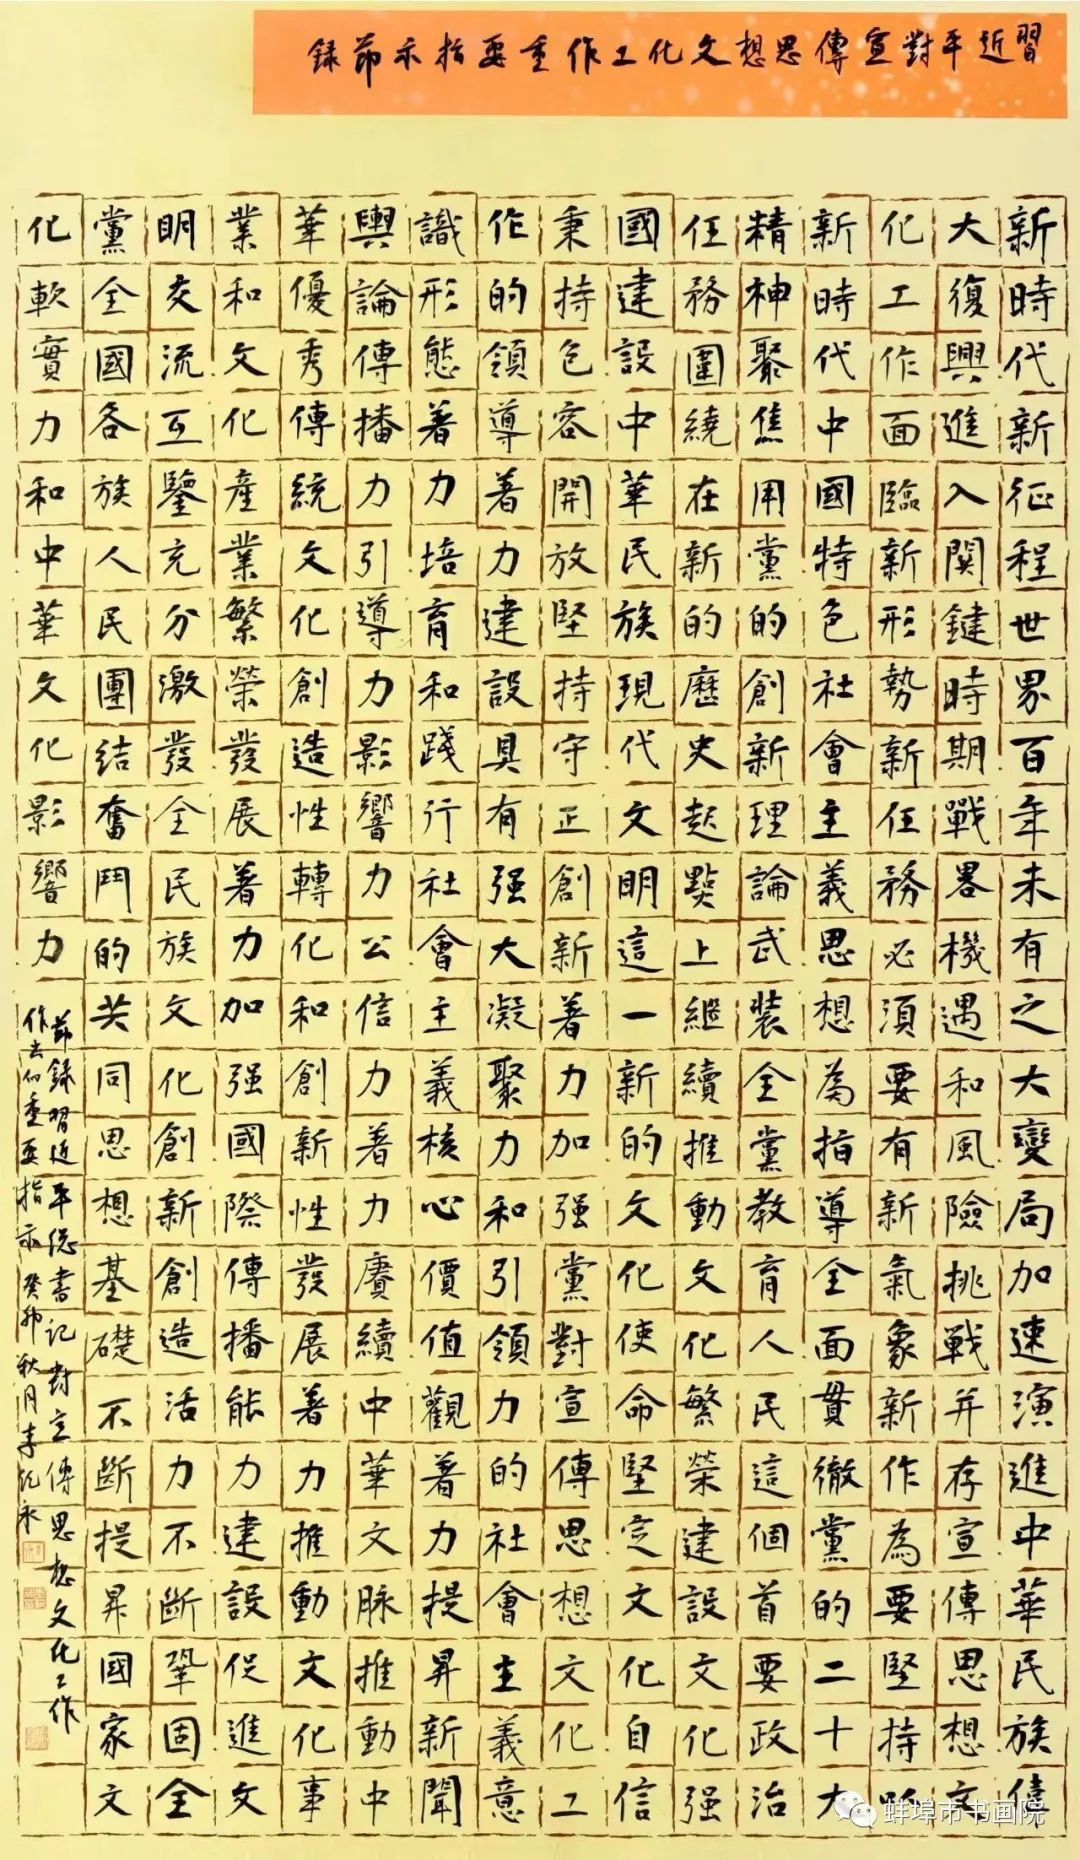 習近平對宣傳思想文化工作重要指示節錄
新時代新征程世界百年未有之大變局加速演進中華民族偉
大復興進入関鍵時期戰畧機遇和風險挑戰并存宣傳思想文
化工作面臨新形勢新任務必須要有新氣象新作為要堅持以
新時代中國特色社會主義思想為指導全面貫徹黨的二十大
精神聚焦用黨的創新理論武裝全黨教育人民這個首要政治
任務圍繞在新的歷史起點上繼續推動文化繁榮建設文化强
國建設中華民族現代文明這一新的文化使命堅定文化自信
秉持包容開放堅持守正創新著力加强黨對宣傳思想文化工
作的領導著力建設具有强大凝聚力和引領力的社會主義意
識形態著力培育和踐行社會主義核心價值觀著力提昇新聞
輿論傳播力引導力影響力公信力著力賡續中華文脈推動中
華優秀傳統文化創造性轉化和創新性發展著力推動文化事
業和文化產業繁榮發展著力加强國際傳播能力建設促進文
明交流互鑒充分激發全民族文化創新創造活力不斷鞏固全
黨全國各族人民團結奮鬥的共同思想基礎不斷提昇國家文
化軟實力和中華文化影響力
節錄習近平總書記對宣傳思想文化工作
作出的重要指示 癸卯秋月李
蚌埠市书画院